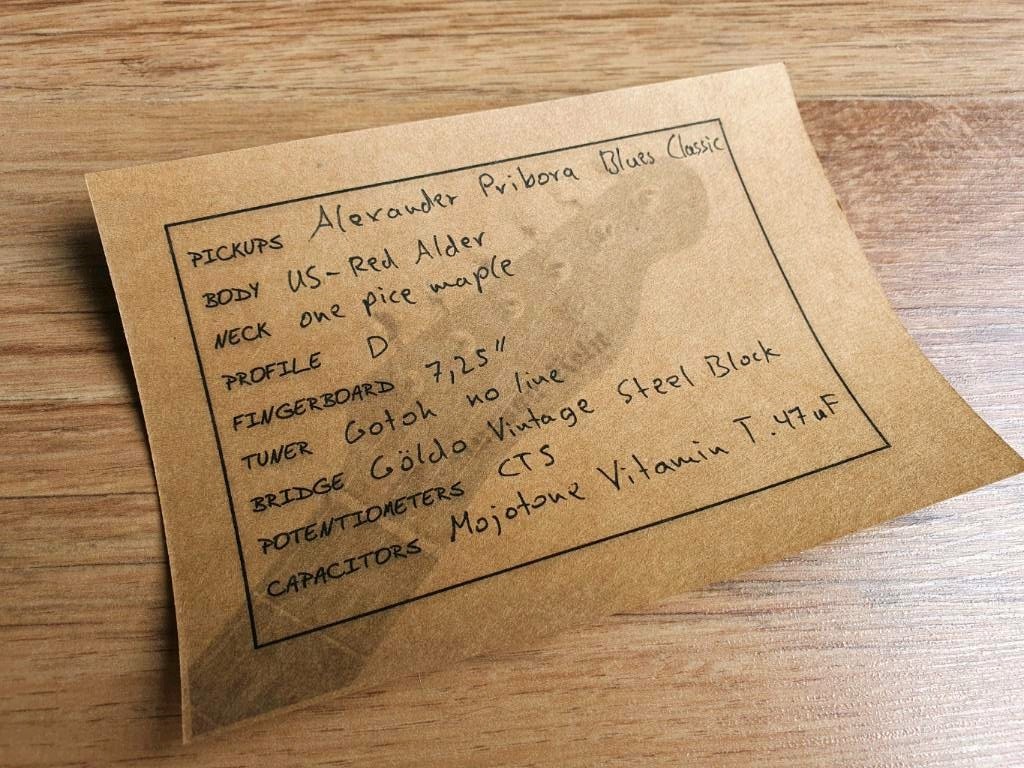 PICKUPS Alexander Pribora Blues Classic
BODY US-Red Alder
NECK one pice maple
PROFILE D
FINGERBOARD 7,25"
TUNER Gotoh no line
BRIDGE Göldo Vintage Steel Block
POTENTIOMETERS CTS
CAPACITORS Mojotone Vitamin T .47uF